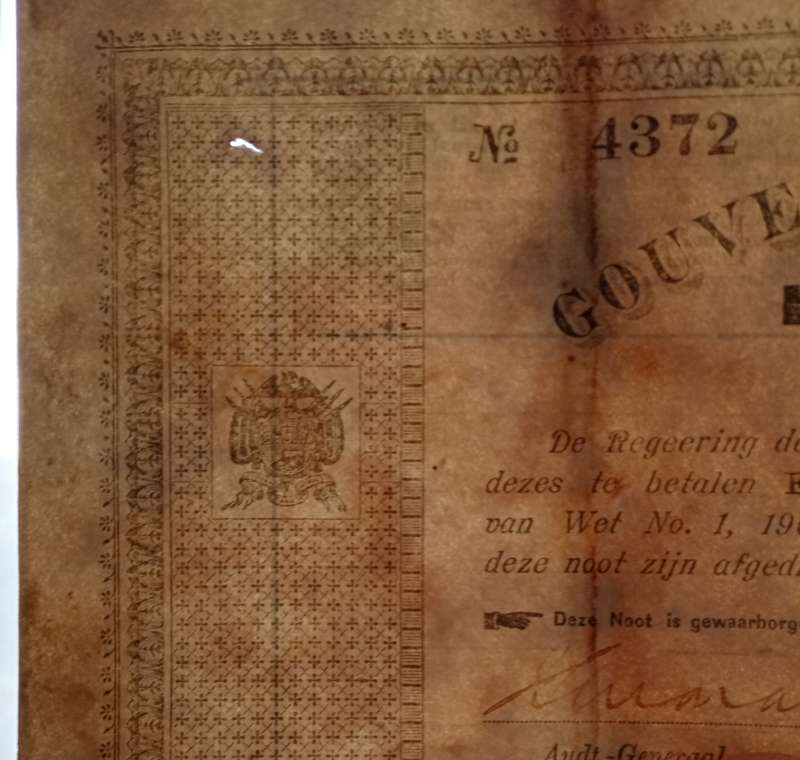 No 4372
GOUVE
De Regeering de
dezes te betalen E
van Wet No. 1, 190
deze noot zijn afged
Deze Noot is gewaarborg
Audt.-Generaal